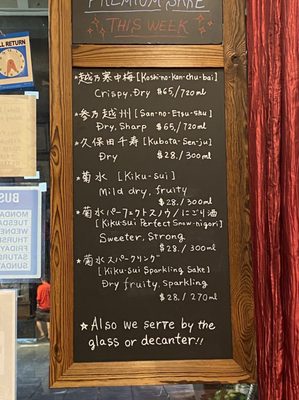 PREMIUM SAKE
THIS WEEK
★越乃寒中梅 [Koshi-no-Kan-chu-bai]
Crispy, Dry $65./720ml
★参乃越州 [San-no-Etsu-shu]
Dry, Sharp $65./720ml
★久保田千寿 [Kubota-Senju]
Dry $28./300ml
★菊水 [Kiku-sui]
Mild dry, fruity
$28./300ml
★菊水パーフェクトスノウ/にごり酒
[Kikusui Perfect Snow-nigori]
Sweeter, Strong
$28./300ml
★菊水スパークリング
[Kiku-sui Sparkling Sake]
Dry fruity, sparkling
$28./270ml
★Also we serve by the
glass or decanter!!
RETURN
BUS
MONDAY
TUESDAY
WEDNES
THURSD
FRIDAY
SATURD
SUNDAY